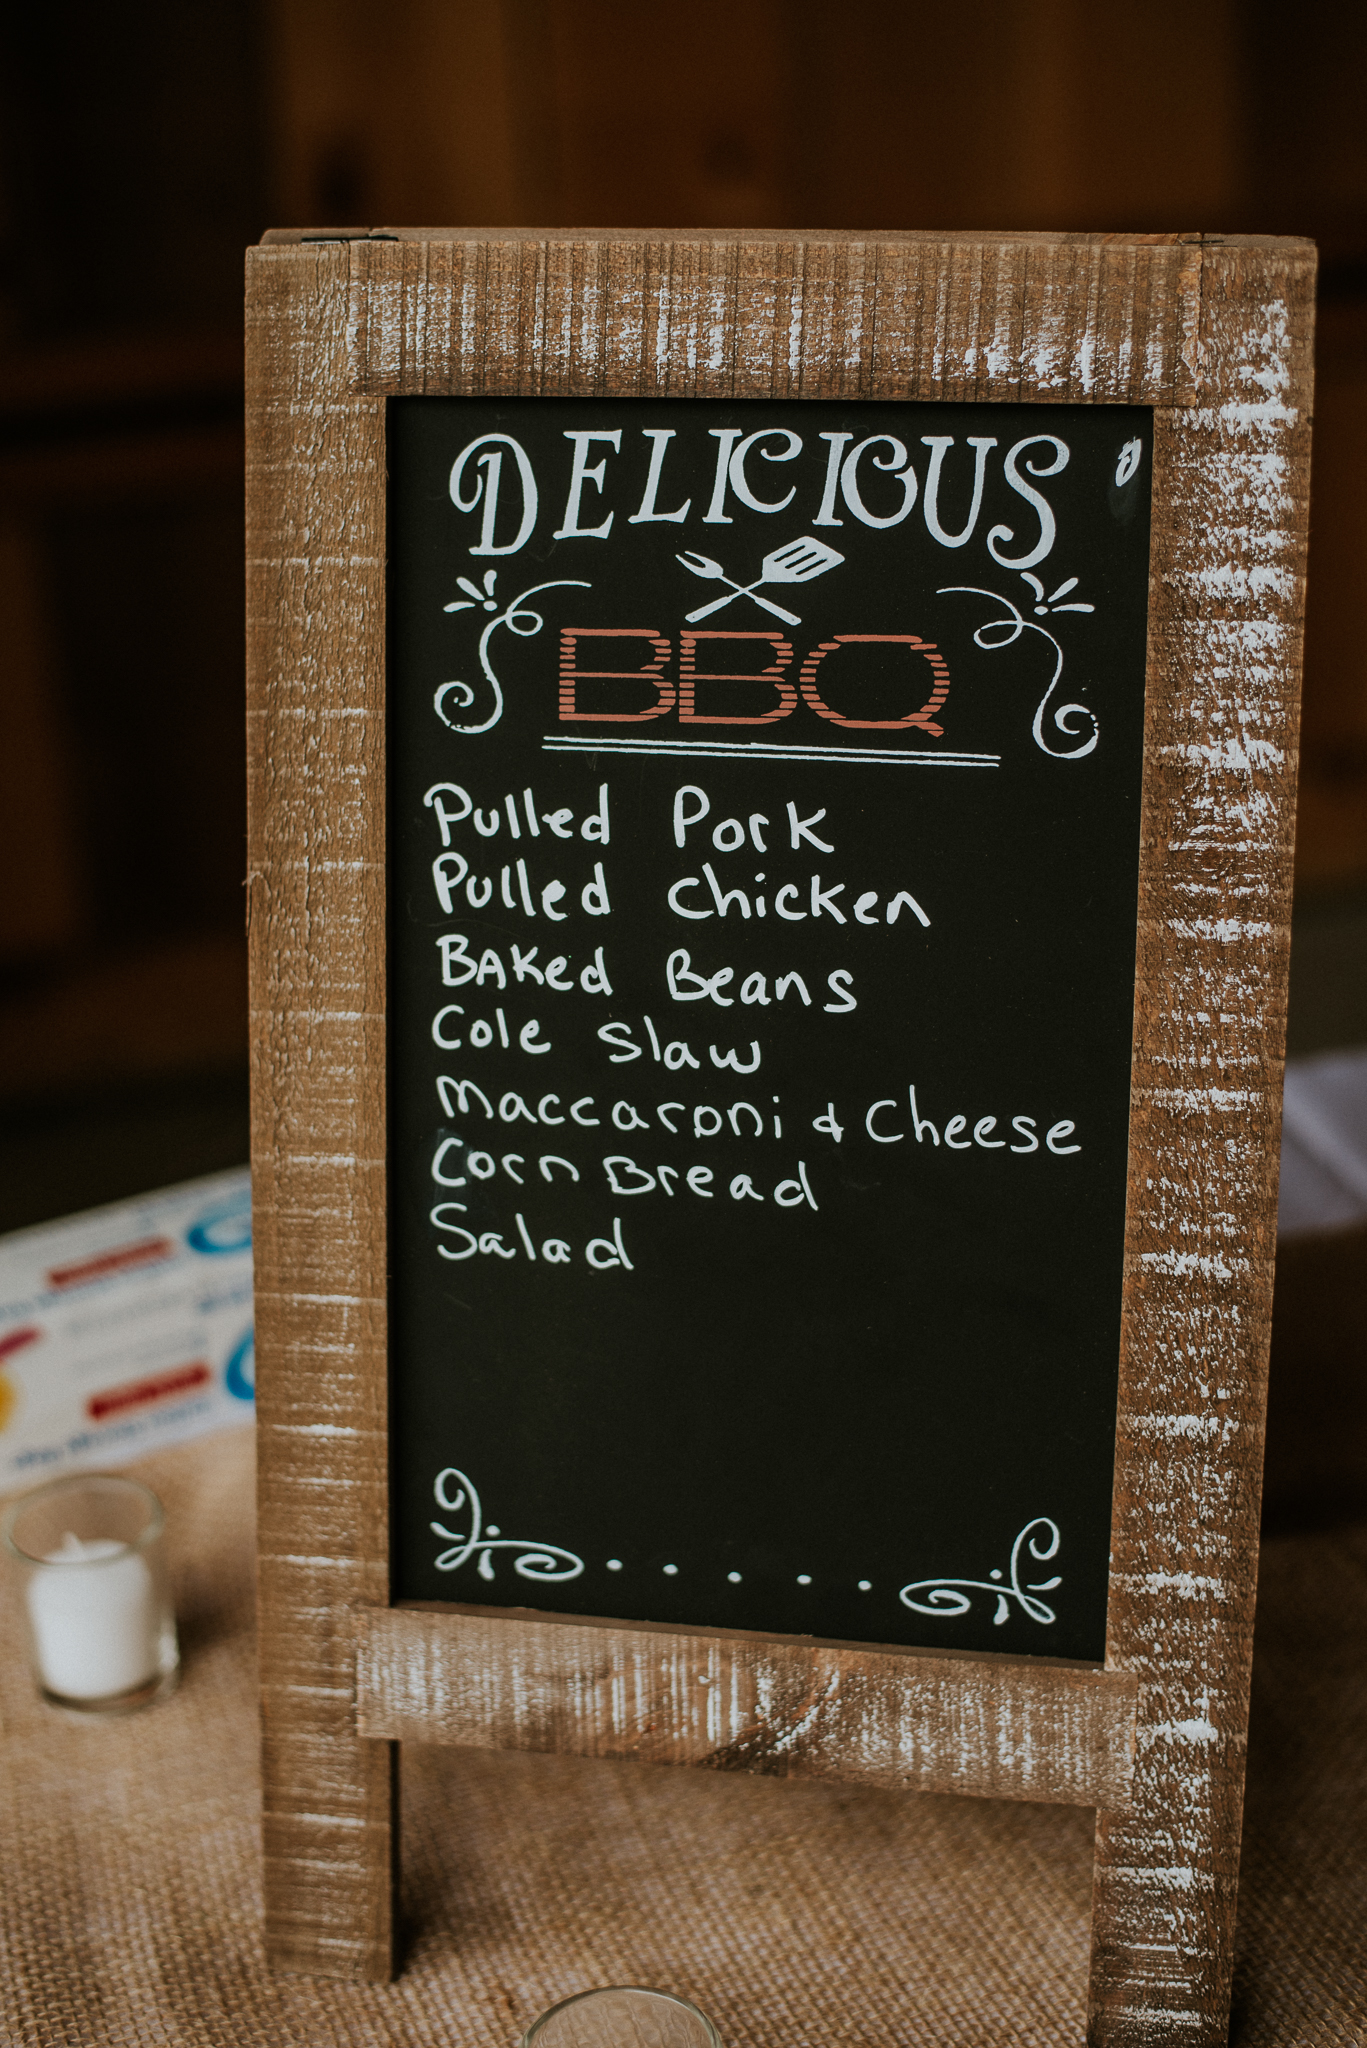 DELICIOUS
BBQ
Pulled Pork
Pulled Chicken
Baked Beans
Cole Slaw
Maccaroni & Cheese
Corn Bread
Salad